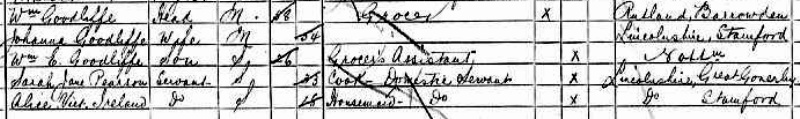 Wm Goodliffe Head M. 58 Grocer X Rutland, Barrowden
Johanna Goodliffe Wife M 54 Lincolnshire, Stamford
Wm E. Goodliffe Son S 26 Grocer's Assistant X Nottm
Sarah Jane Pearson Servant S 23 Cook - Domestic Servant X Lincolnshire, Great Gonerby
Alice Vict. Ireland Do S 18 Housemaid - Do X Do Stamford